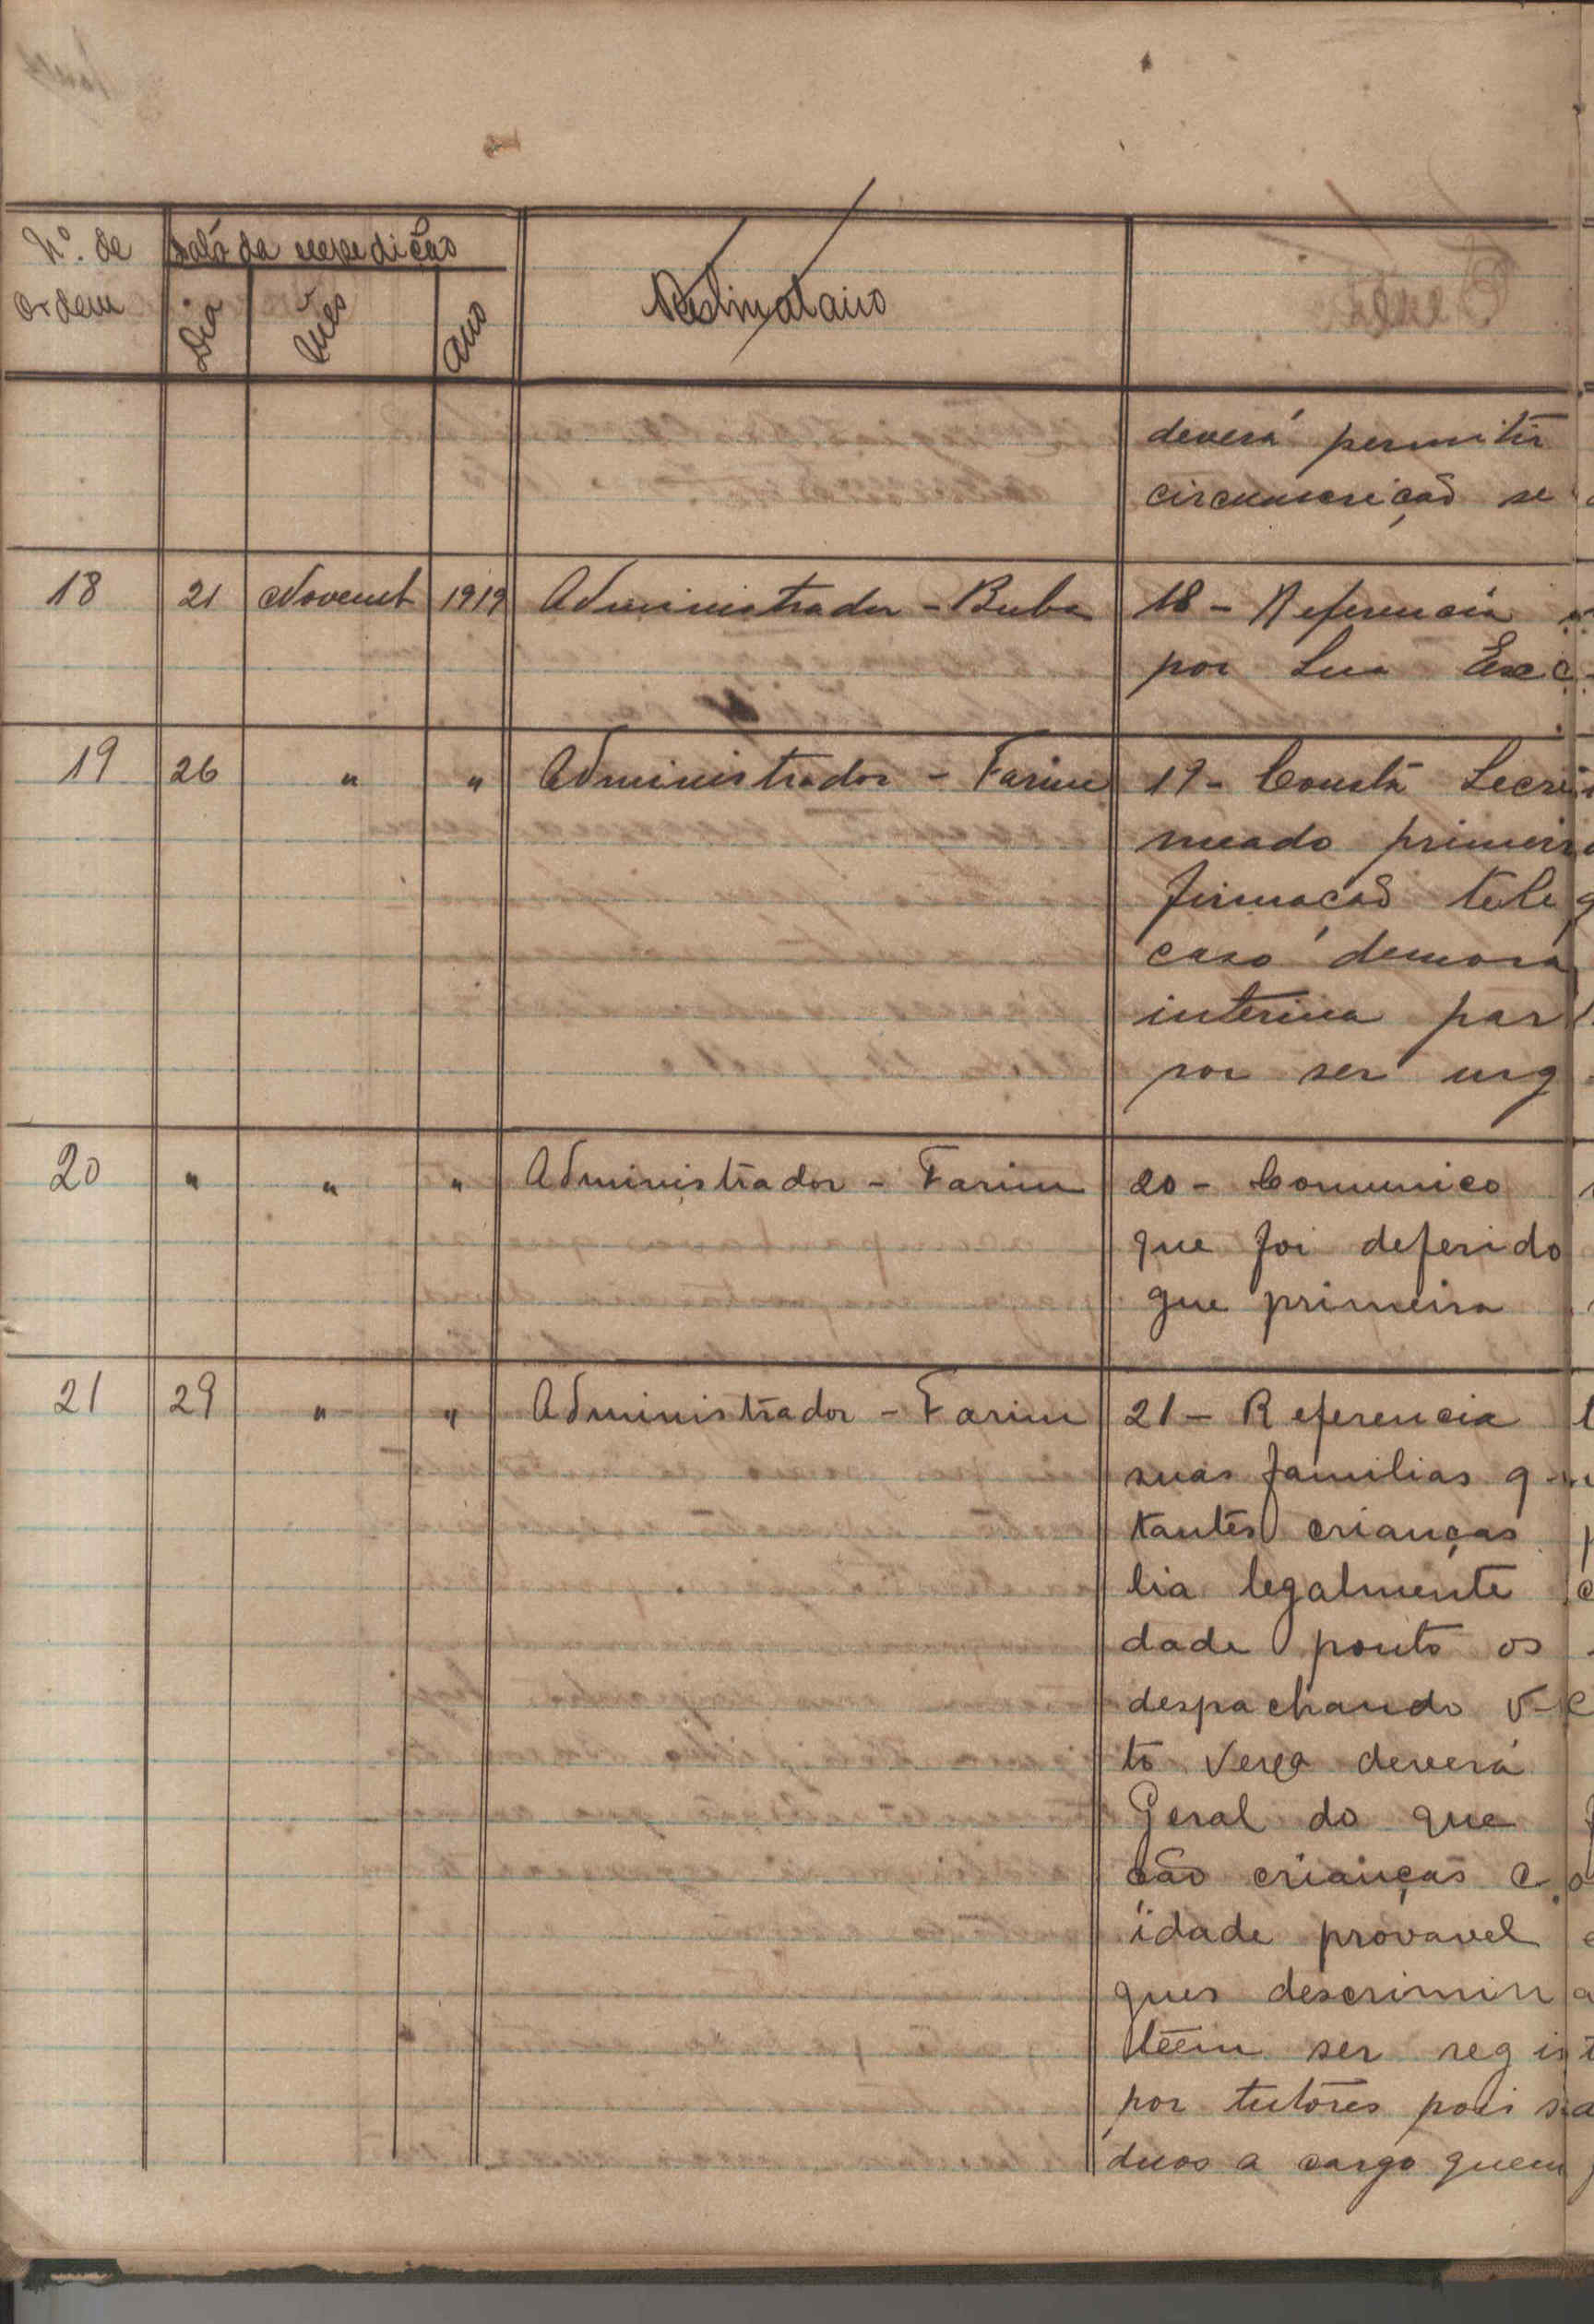 Nº. de ordem
Data da expedição
Dia
Mês
Ano
Destinatairo
deverá permitir
circunscrição se
18 21 Novemb 1919 Administrador - Buba 18 - Referencia
por Sua Exc
19 26 " " Administrador - Farim 19 - Consta Secre
meado primeir
firmação teleg
caso demora
interina par
por ser urg
20 " " " Administrador - Farim 20 - Comunico
que foi deferido
que primeira
21 29 " " Administrador - Farim 21 - Referencia
suas familias q
tantes crianças
lia legalmente
dade ponto os
despachando V
to Verga deverá
Geral do que
ção crianças
idade provavel
ques descrimin
têem ser regist
por tutores pois
duos a cargo quem